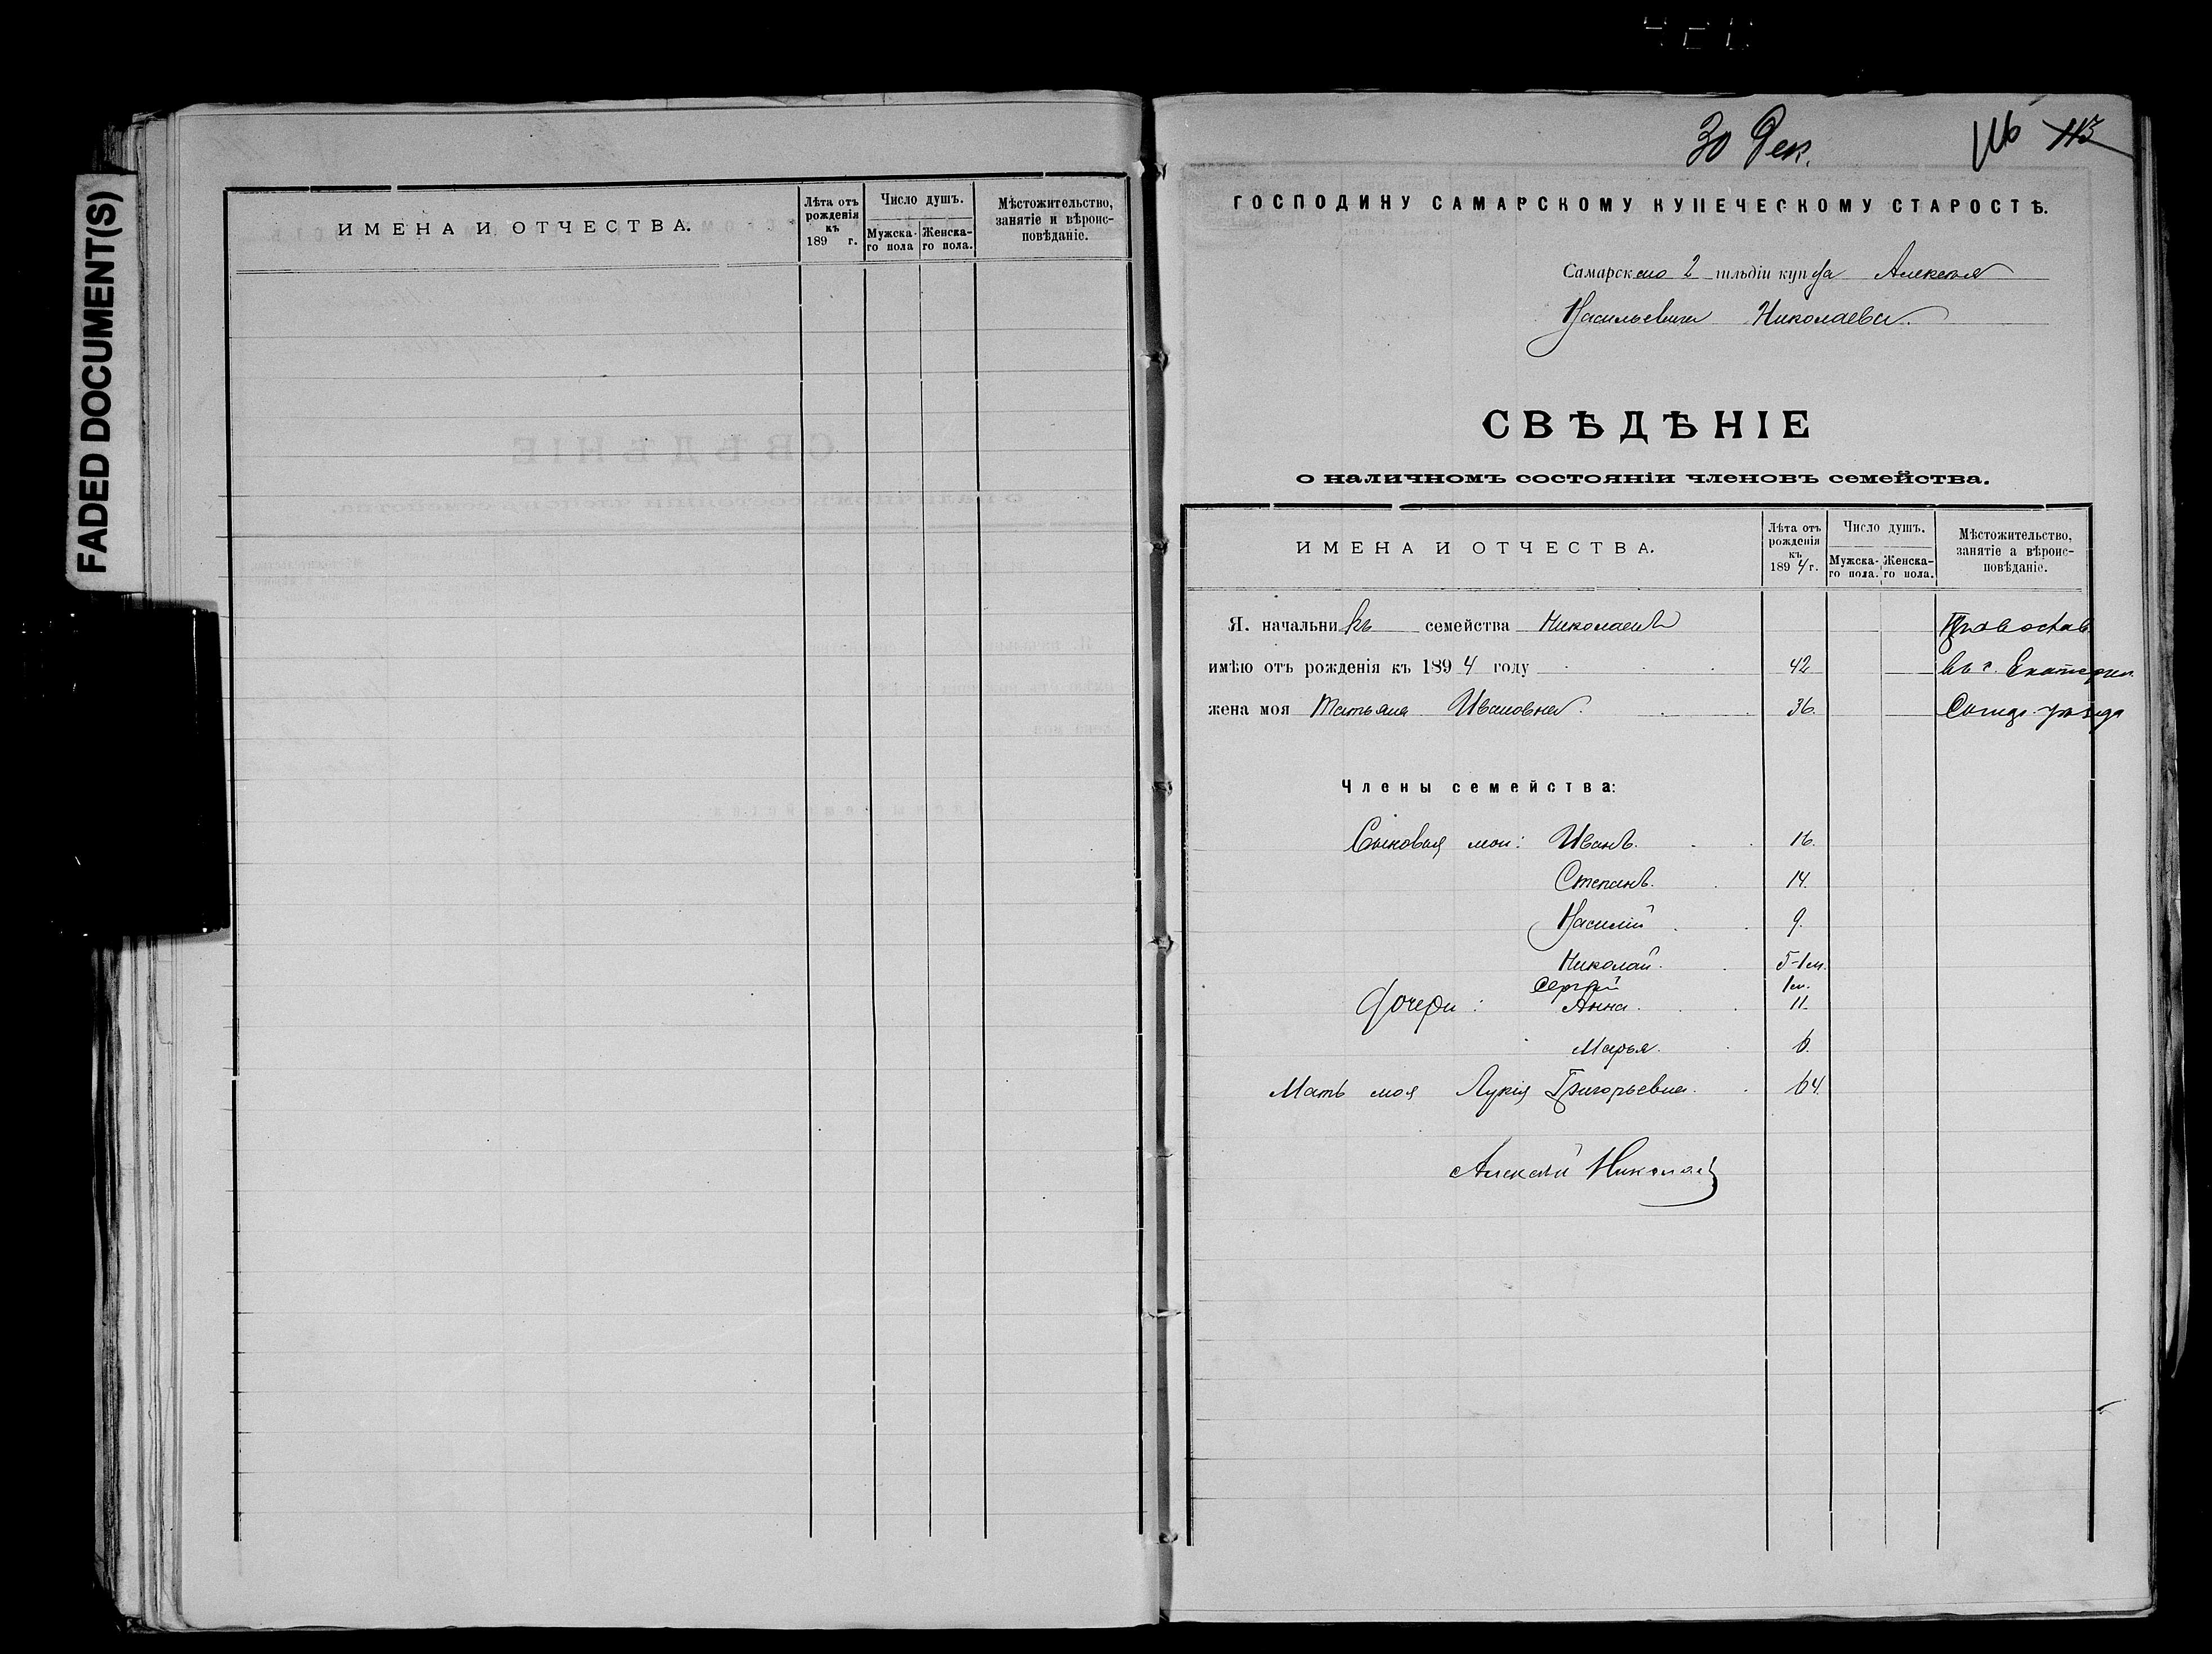 FADED DOCUMENT(S)
ИМЕНА И ОТЧЕСТВА.
Лѣта отъ рожденія къ 189 г.
Число душъ.
Мужска-го пола
Женска-го пола.
Мѣстожительство, занятіе и вѣроис-повѣданіе.
30 Дек.
116 113
ГОСПОДИНУ САМАРСКОМУ КУПЕЧЕСКОМУ СТАРОСТѢ.
Самарскаго 2 гильдіи купца Алексѣя
Васильевича Николаева.
СВѢДѢНІЕ
о наличномъ состояніи членовъ семейства.
ИМЕНА И ОТЧЕСТВА.
Лѣта отъ рожденія къ 1894 г.
Число душъ.
Мужска-го пола.
Женска-го пола.
Мѣстожительство, занятіе а вѣроис-повѣданіе.
Я. начальникъ семейства Николаевъ Православ.
имѣю отъ рожденія къ 1894 году 42 въ с. Екатерин.
жена моя Татьяна Ивановна. 36. уѣзда
Члены семейства:
Сыновья мои: Иванъ. 16.
Степанъ. 14.
Василій 9.
Николай. 5-1 м.
Сергѣй 1 м.
Дочери: Анна. 11.
Марья. 6.
Мать моя Лукія Григорьевна. 64.
Алексѣй Николаевъ